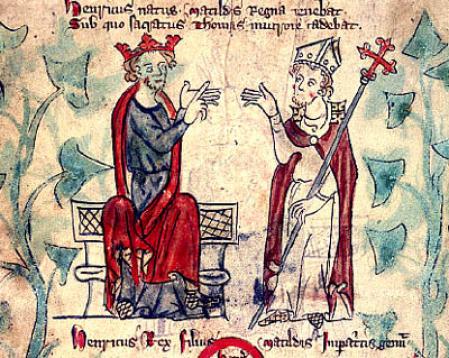 Henricus natus Matildis Regna tenebat
Sub quo sacratus Thomas mucrone cadebat.
Henricus Rex filius Matildis Imp̄atricis